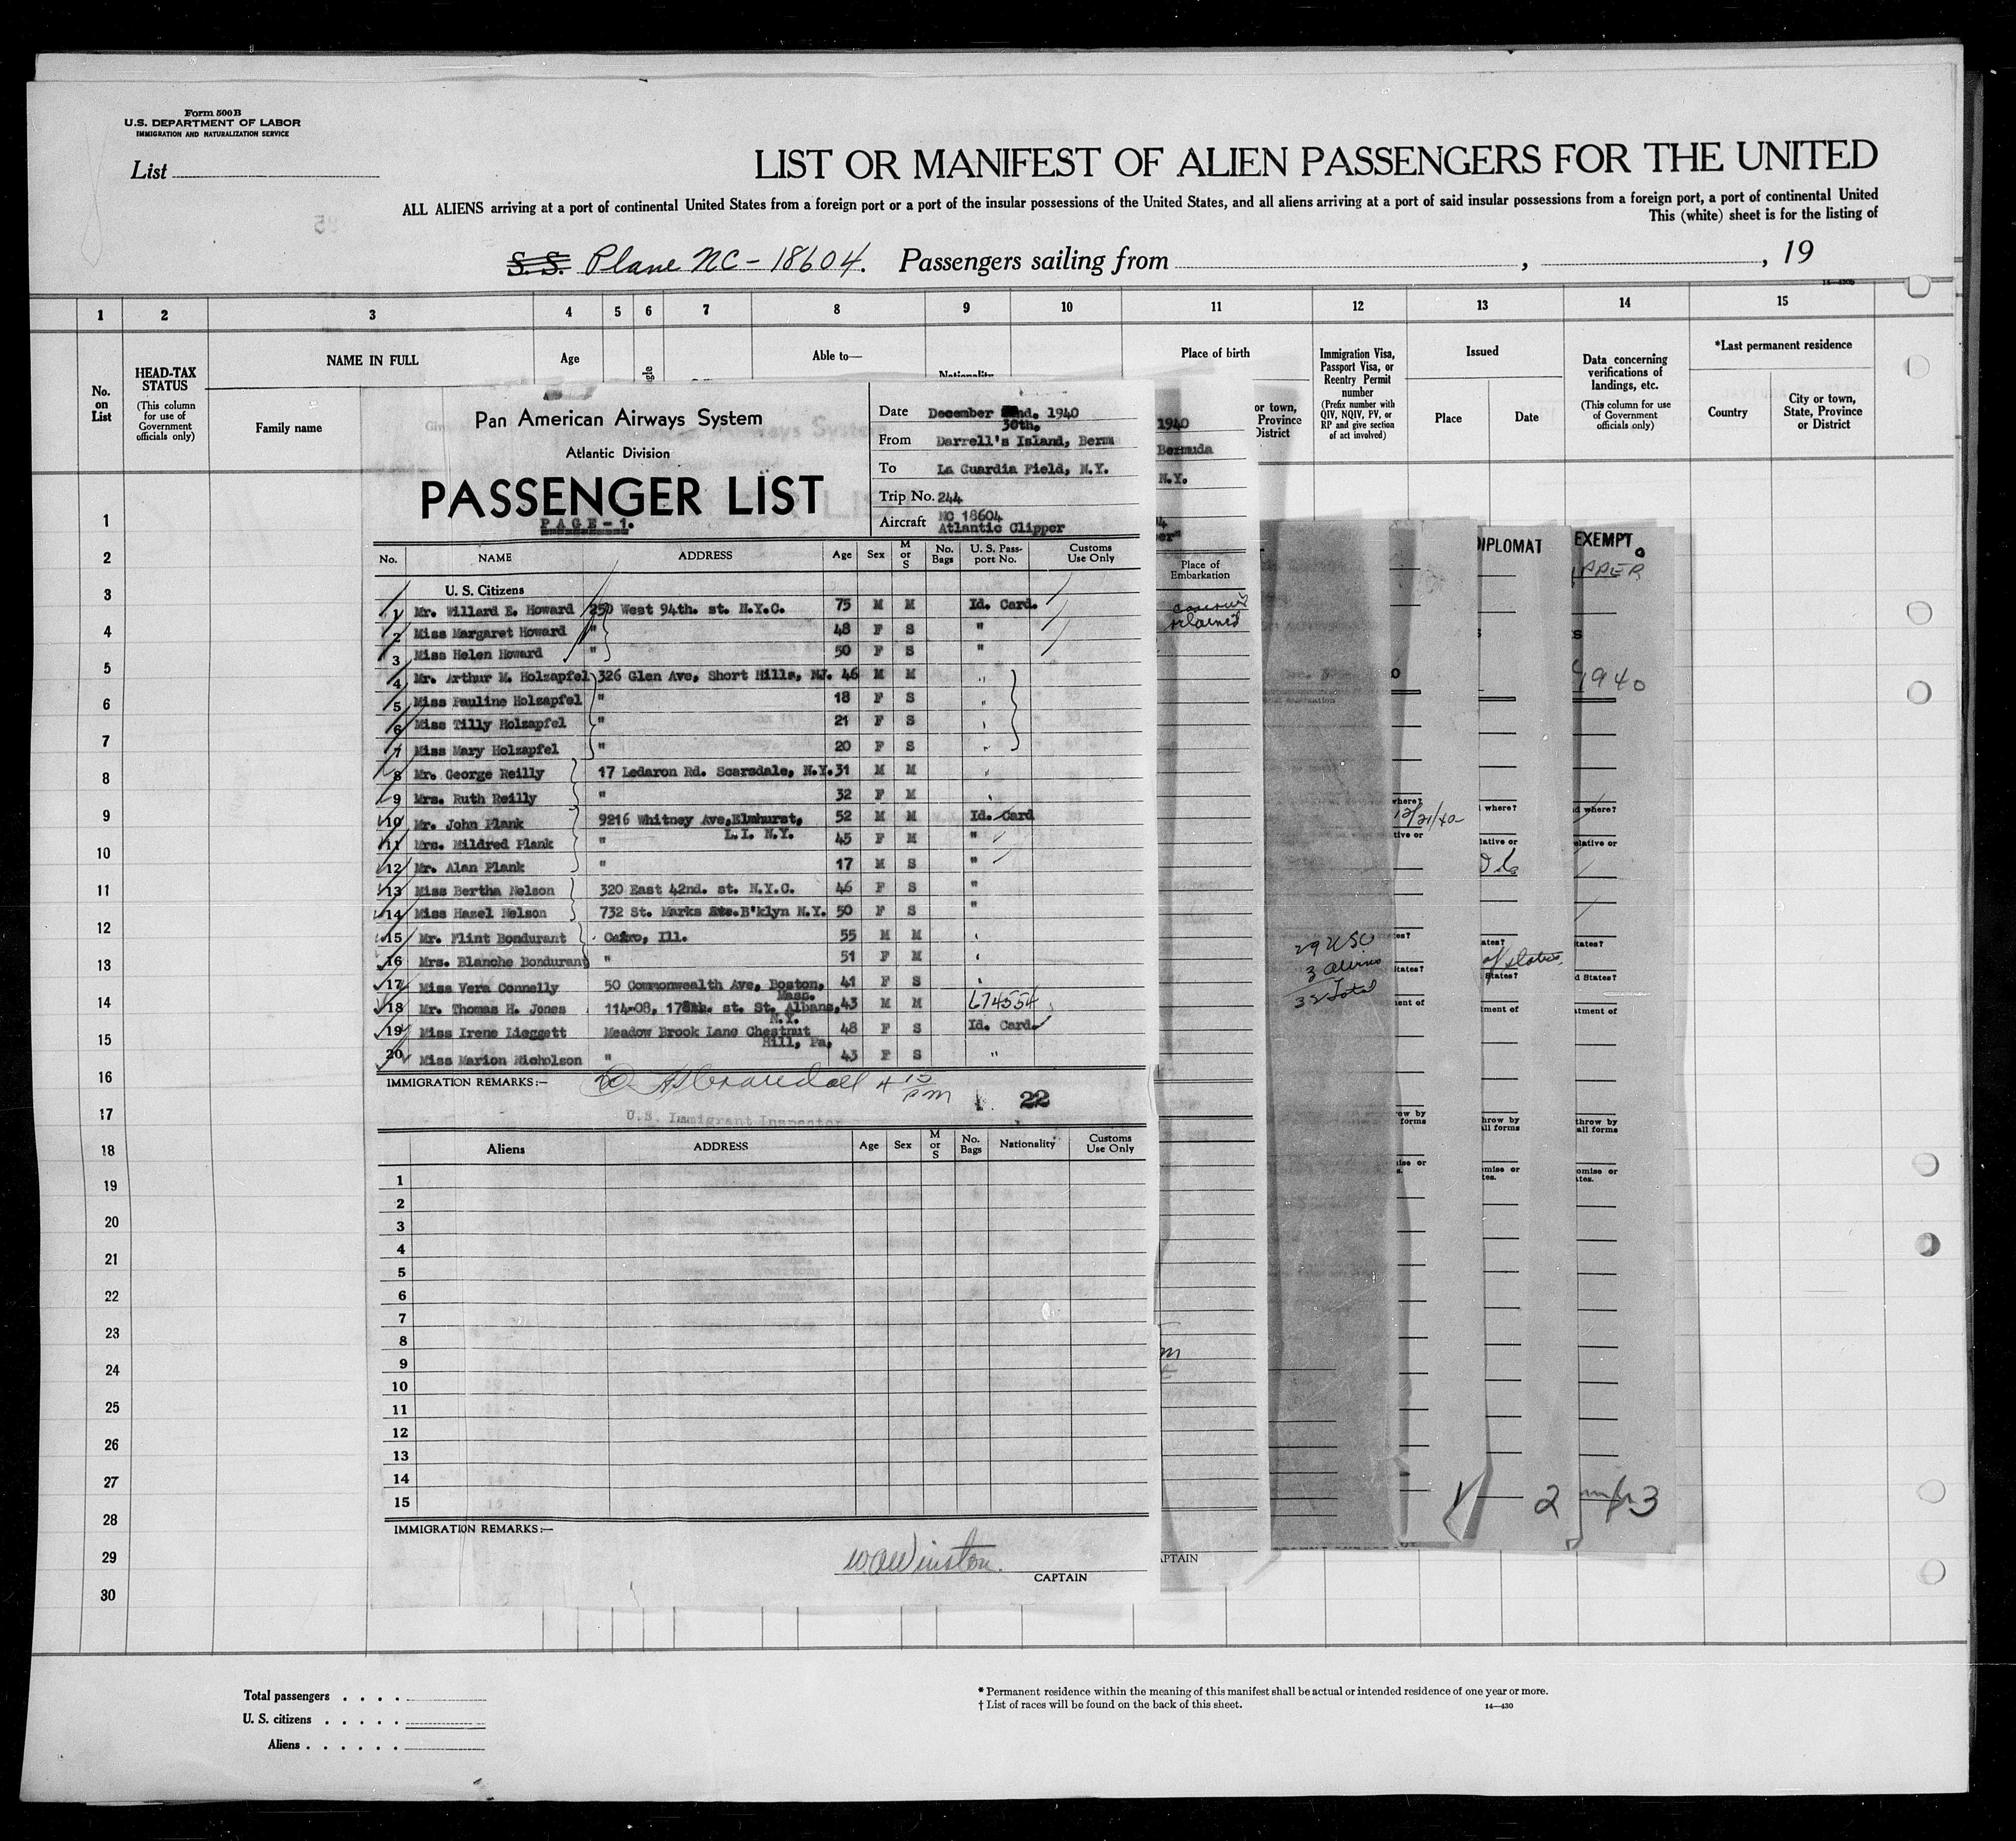 Form 500B
U.S. DEPARTMENT OF LABOR
IMMIGRATION AND NATURALIZATION SERVICE
List
LIST OR MANIFEST OF ALIEN PASSENGERS FOR THE UNITED
ALL ALIENS arriving at a port of continental United States from a foreign port or a port of the insular possessions of the United States, and all aliens arriving at a port of said insular possessions from a foreign port, a port of continental United
This (white) sheet is for the listing of
S. S. Plane NC-18604. Passengers sailing from , , 19
14—430
1 2 3 4 5 6 7 8 9 10 11 12 13 14 15
No. on List
HEAD-TAX STATUS
(This column for use of Government officials only)
NAME IN FULL
Family name
Age
Able to—
Nationality
Place of birth
or town, Province District
Immigration Visa, Passport Visa, or Reentry Permit number
(Prefix number with QIV, NQIV, PV, or RP and give section of act involved)
Issued
Place
Date
Data concerning verifications of landings, etc.
(This column for use of Government officials only)
*Last permanent residence
Country
City or town, State, Province or District
Pan American Airways System
Atlantic Division
PASSENGER LIST
PAGE-1.
Date December nd. 1940
30th.
From Darrell's Island, Berm
To La Guardia Field, N.Y.
Trip No. 244
Aircraft NC 18604
Atlantic Clipper
No. NAME ADDRESS Age Sex M or S No. Bags U. S. Passport No. Customs Use Only
U. S. Citizens
1 Mr. Willard E. Howard 250 West 94th. st. N.Y.C. 75 M M Id. Card.
2 Miss Margaret Howard " 48 F S "
3 Miss Helen Howard " 50 F S "
4 Mr. Arthur M. Holzapfel 326 Glen Ave, Short Hills, NJ. 46 M M "
5 Miss Pauline Holzapfel " 18 F S "
6 Miss Tilly Holzapfel " 21 F S
7 Miss Mary Holzapfel " 20 F S
8 Mr. George Reilly 17 Ledaron Rd. Scarsdale, N.Y. 31 M M
9 Mrs. Ruth Reilly " 32 F M
10 Mr. John Plank 9216 Whitney Ave, Elmhurst, 52 M M Id. Card
L.I. N.Y.
11 Mrs. Mildred Plank " 45 F M "
12 Mr. Alan Plank " 17 M S "
13 Miss Bertha Nelson 320 East 42nd. st. N.Y.C. 46 F S "
14 Miss Hazel Nelson 732 St. Marks B'klyn N.Y. 50 F S "
15 Mr. Flint Bondurant Cairo, Ill. 55 M M
16 Mrs. Blanche Bondurant " 51 F M
17 Miss Vera Connelly 50 Commonwealth Ave, Boston, 41 F S
Mass.
18 Mr. Thomas H. Jones 114-08, 178th. st. St. Albans, 43 M M 674554
N.Y.
19 Miss Irene Lieggett Meadow Brook Lane Chestnut 48 F S Id. Card
Hill, Pa,
20 Miss Marion Nicholson " 43 F S "
IMMIGRATION REMARKS:—
20 4 15 pm
22
U.S. Immigrant Inspector
Aliens ADDRESS Age Sex M or S No. Bags Nationality Customs Use Only
1
2
3
4
5
6
7
8
9
10
11
12
13
14
15
IMMIGRATION REMARKS:—
WA Winston
CAPTAIN
1940
Bermuda
N.Y.
Place of Embarkation
APTAIN
29 USC
3 Aliens
32 Total
where?
12/21/40
DIPLOMAT
where?
ative or
States?
ment of
throw by
all forms
EXEMPT
PPER
1940
d where?
elative or
tates?
d States?
atment of
throw by
all forms
omise or
ates.
1
2
3
1
2
3
4
5
6
7
8
9
10
11
12
13
14
15
16
17
18
19
20
21
22
23
24
25
26
27
28
29
30
Total passengers
U. S. citizens
Aliens
* Permanent residence within the meaning of this manifest shall be actual or intended residence of one year or more.
† List of races will be found on the back of this sheet.
14—430